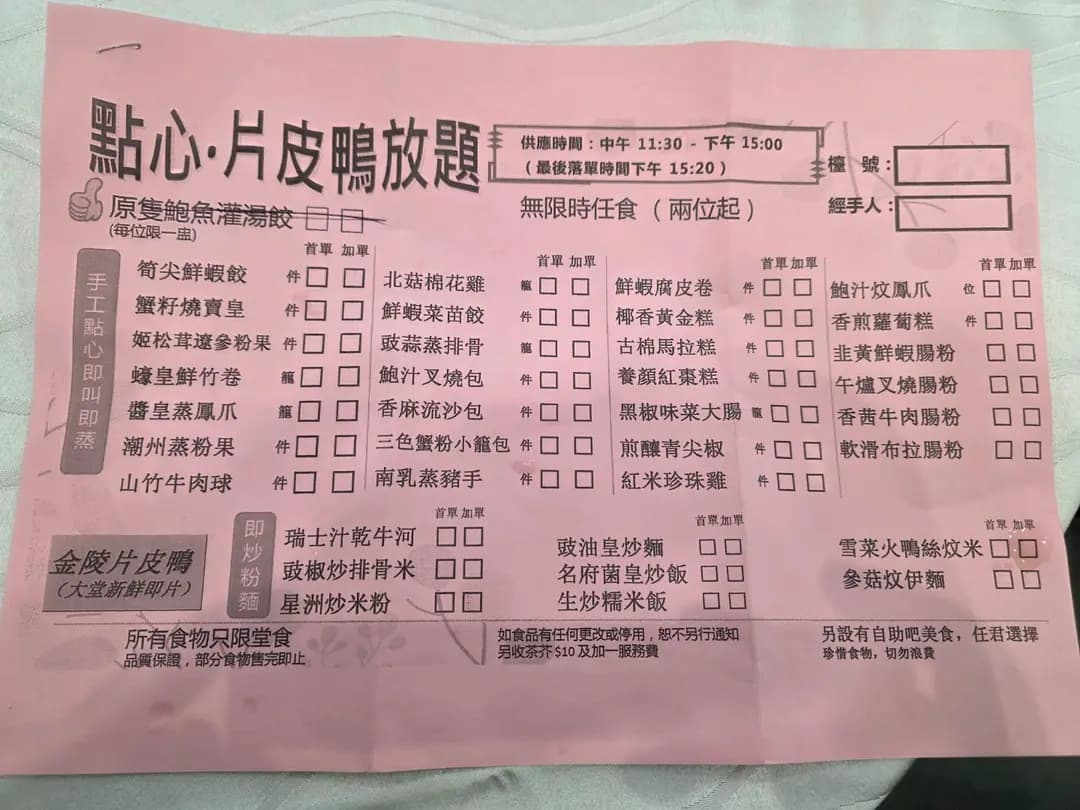 點心·片皮鴨放題
供應時間:中午 11:30 - 下午 15:00
(最後落單時間下午 15:20)
檯 號:
經手人:
原隻鮑魚灌湯餃
(每位限一盅)
無限時任食(兩位起)
手工點心即叫即蒸
首單 加單
筍尖鮮蝦餃 件
蟹籽燒賣皇 件
姬松茸遼參粉果 件
蠔皇鮮竹卷 籠
醬皇蒸鳳爪 籠
潮州蒸粉果 件
山竹牛肉球 件
首單 加單
北菇棉花雞 籠
鮮蝦菜苗餃 件
豉蒜蒸排骨 籠
鮑汁叉燒包 件
香麻流沙包 件
三色蟹粉小籠包 件
南乳蒸豬手 件
首單 加單
鮮蝦腐皮卷 件
椰香黃金糕 件
古棉馬拉糕 件
養顏紅棗糕 件
黑椒味菜大腸 籠
煎釀青尖椒 件
紅米珍珠雞 件
首單 加單
鮑汁炆鳳爪 位
香煎蘿蔔糕 件
韭黃鮮蝦腸粉
午爐叉燒腸粉
香茜牛肉腸粉
軟滑布拉腸粉
金陵片皮鴨
(大堂新鮮即片)
即炒粉麵
首單 加單
瑞士汁乾牛河
豉椒炒排骨米
星洲炒米粉
首單 加單
豉油皇炒麵
名府菌皇炒飯
生炒糯米飯
首單 加單
雪菜火鴨絲炆米
參菇炆伊麵
所有食物只限堂食
品質保證,部分食物售完即止
如食品有任何更改或停用,恕不另行通知
另收茶芥 $10 及加一服務費
另設有自助吧美食,任君選擇
珍惜食物,切勿浪費